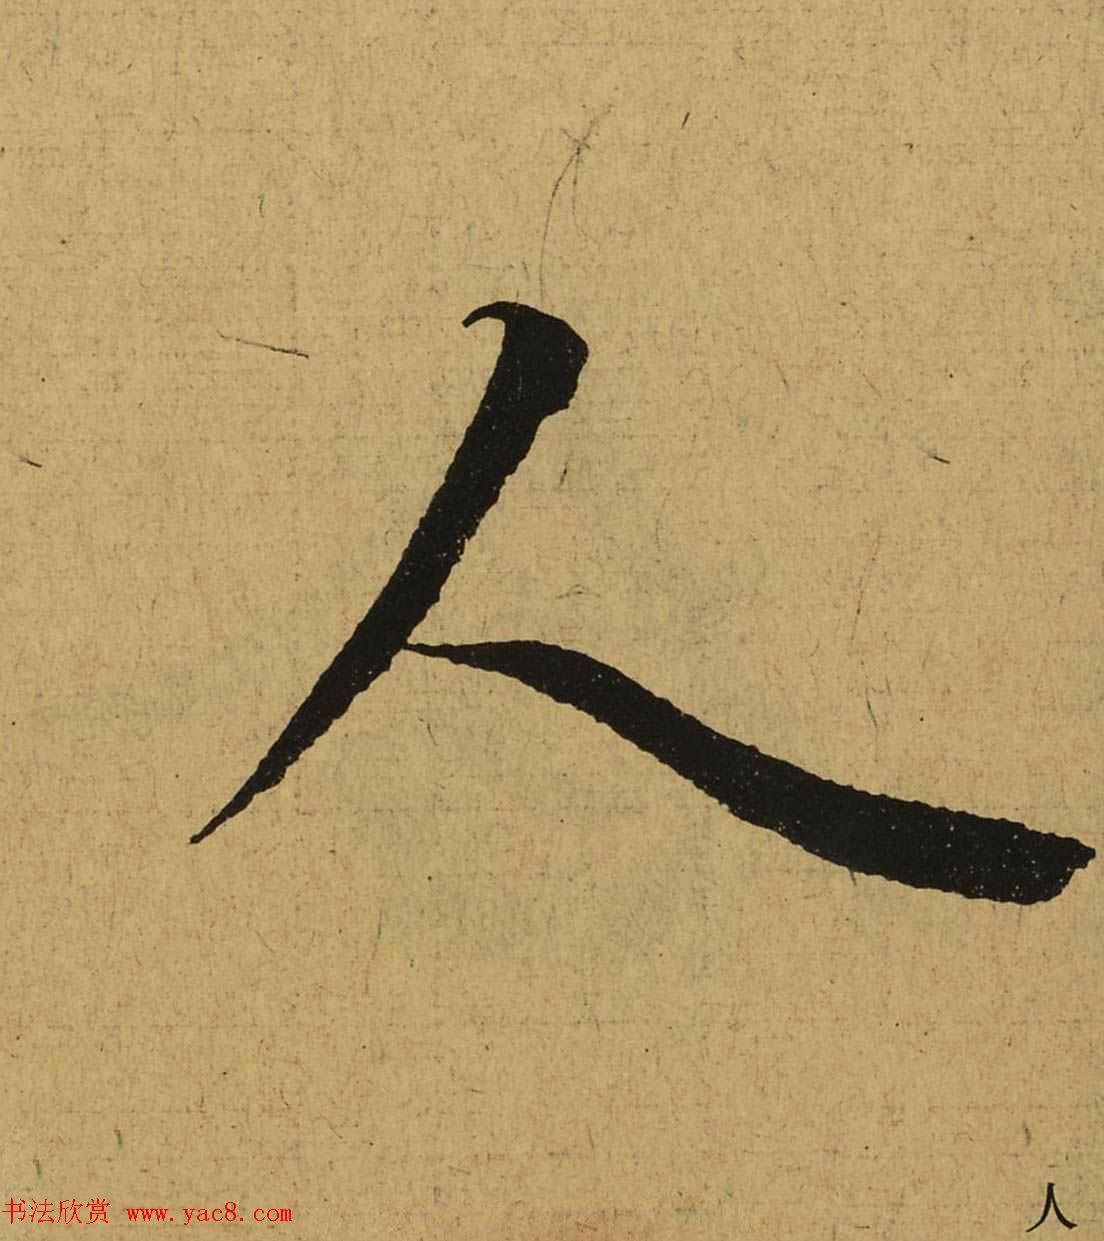 人
书法欣赏 www.yac8.com
人